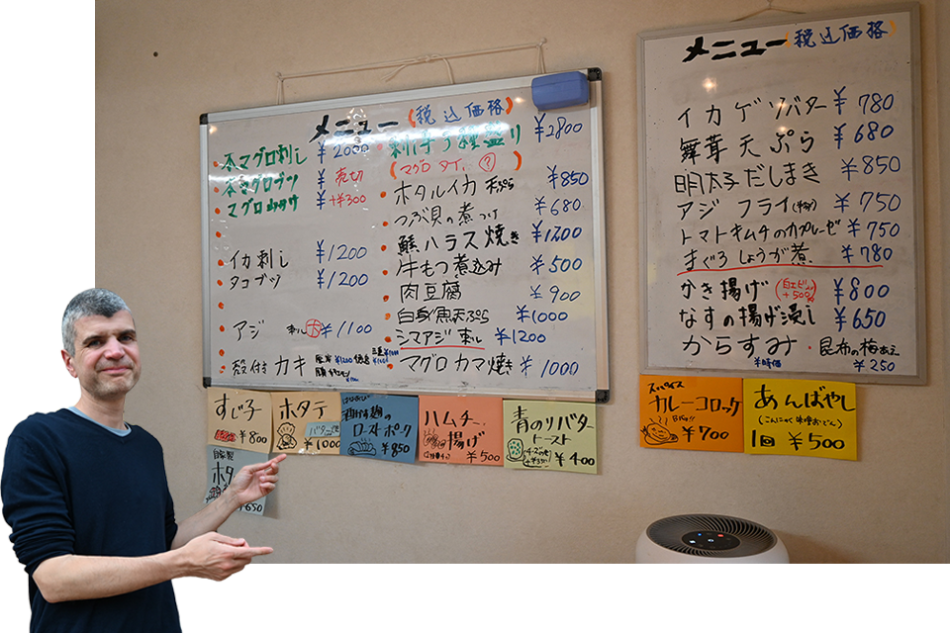 メニュー(税込価格)
本マグロ刺し ¥2000
本マグロブツ ¥ 売切
マグロ山かけ ¥+¥300
イカ刺し ¥1200
タコブツ ¥1200
アジ 刺し ¥1100
殻付カキ
刺身5種盛り ¥2800
(マグロ タイ、?)
ホタルイカ 天ぷら ¥850
つぶ貝の煮つけ ¥680
鮭ハラス焼き ¥1200
牛もつ煮込み ¥500
肉豆腐 ¥900
白身魚天ぷら ¥1000
シマアジ 刺し ¥1200
マグロカマ焼き ¥1000
メニュー(税込価格)
イカゲソバター ¥780
舞茸天ぷら ¥680
明太子だしまき ¥850
アジ フライ ¥750
トマトキムチのカプレーゼ ¥750
まぐろしょうが煮 ¥780
かき揚げ ¥800
なすの揚げ浸し ¥650
からすみ ¥時価
昆布の梅あえ ¥250
すじ子 ¥800
ホタテ バター焼 ¥1000
ローストポーク ¥850
ハムチーズ揚げ ¥500
青のりバタートースト ¥400
自家製 ¥650
スパイス カレーコロッケ ¥700
あんばやし
(こんにゃく味噌おでん)
1皿 ¥500